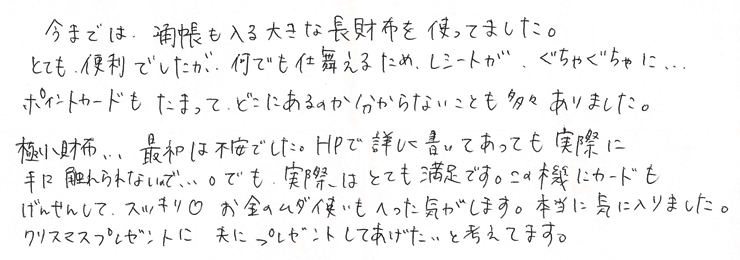 今までは、通帳も入る大きな長財布を使ってました。
とても、便利でしたが、何でも仕舞えるため、レシートが、ぐちゃぐちゃに...
ポイントカードもたまって、どこにあるのか分からないことも多々ありました。
極小財布... 最初は不安でした。HPで詳しく書いてあっても実際に
手に触れられないので...。でも、実際はとても満足です。この機にカードも
げんせんして、スッキリ♡ お金のムダ使いもへった気がします。本当に気に入りました。
クリスマスプレゼントに 夫にプレゼントしてあげたいと考えてます。